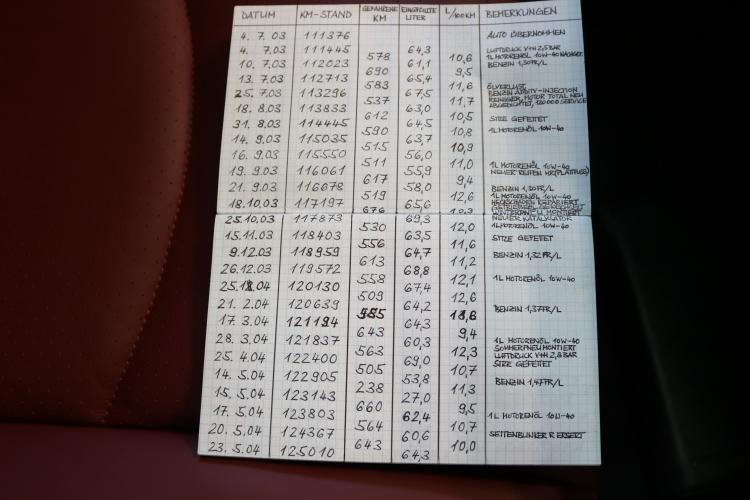 DATUM KM-STAND GEFAHRENE KM EINGEFÜLLTE LITER L/100KM BEMERKUNGEN
4. 7.03 111376 AUTO ÜBERNOMMEN
4. 7.03 111445 64,3 LUFTDRUCK V+H 2,5BAR
578 10,6 1L MOTORENÖL 10W-40
10. 7.03 112023 61,1 BENZIN 1,30FR/L
690 9,5
13. 7.03 112713 65,4
583 11,6 ÖLVERLUST
25. 7.03 113296 67,5 BENZIN ADDITIV-INJECTION
537 11,7 REINIGER, MOTOR TOTAL NEU
18. 8.03 113833 63,0 ABGEDICHTET, 120000 SERVICE
612 10,5
31. 8.03 114445 64,5 SITZE GEFETTET
590 10,8 1L MOTORENÖL 10W-40
14. 9.03 115035 63,7
515 10,9
16. 9.03 115550 56,0
511 11,0 1L MOTORENÖL 10W-40
19. 9.03 116061 55,9 NEUER REIFEN HR(PLATTFUSS)
617 9,4
21. 9.03 116678 58,0 BENZIN 1,30FR/L
519 12,6 1L MOTORENÖL 10W-40
18.10.03 117197 65,6 HECKSCHADEN REPARIERT
676 10,3 WINTERPNEU MONTIERT
25.10.03 117873 69,3 NEUER KATALYSATOR
530 12,0 1L MOTORENÖL 10W-40
15.11.03 118403 63,5
556 11,6 SITZE GEFETTET
9.12.03 118959 64,7
613 11,2 BENZIN 1,32FR/L
26.12.03 119572 68,8
558 12,1 1L MOTORENÖL 10W-40
25.1.04 120130 67,4
509 12,6
21. 2.04 120639 64,2 BENZIN 1,37FR/L
555 11,6
17. 3.04 121194 64,3
643 9,4
28. 3.04 121837 60,3 1L MOTORENÖL 10W-40
563 12,3 SOMMERPNEU MONTIERT
25. 4.04 122400 69,0 LUFTDRUCK V+H 2,8 BAR
505 10,7 SITZE GEFETTET
14. 5.04 122905 53,8
238 11,3 BENZIN 1,47FR/L
15. 5.04 123143 27,0
660 9,5
17. 5.04 123803 62,4 1L MOTORENÖL 10W-40
564 10,7
20. 5.04 124367 60,6 SEITENBLINKER R ERSETZT
643 10,0
23. 5.04 125010 64,3